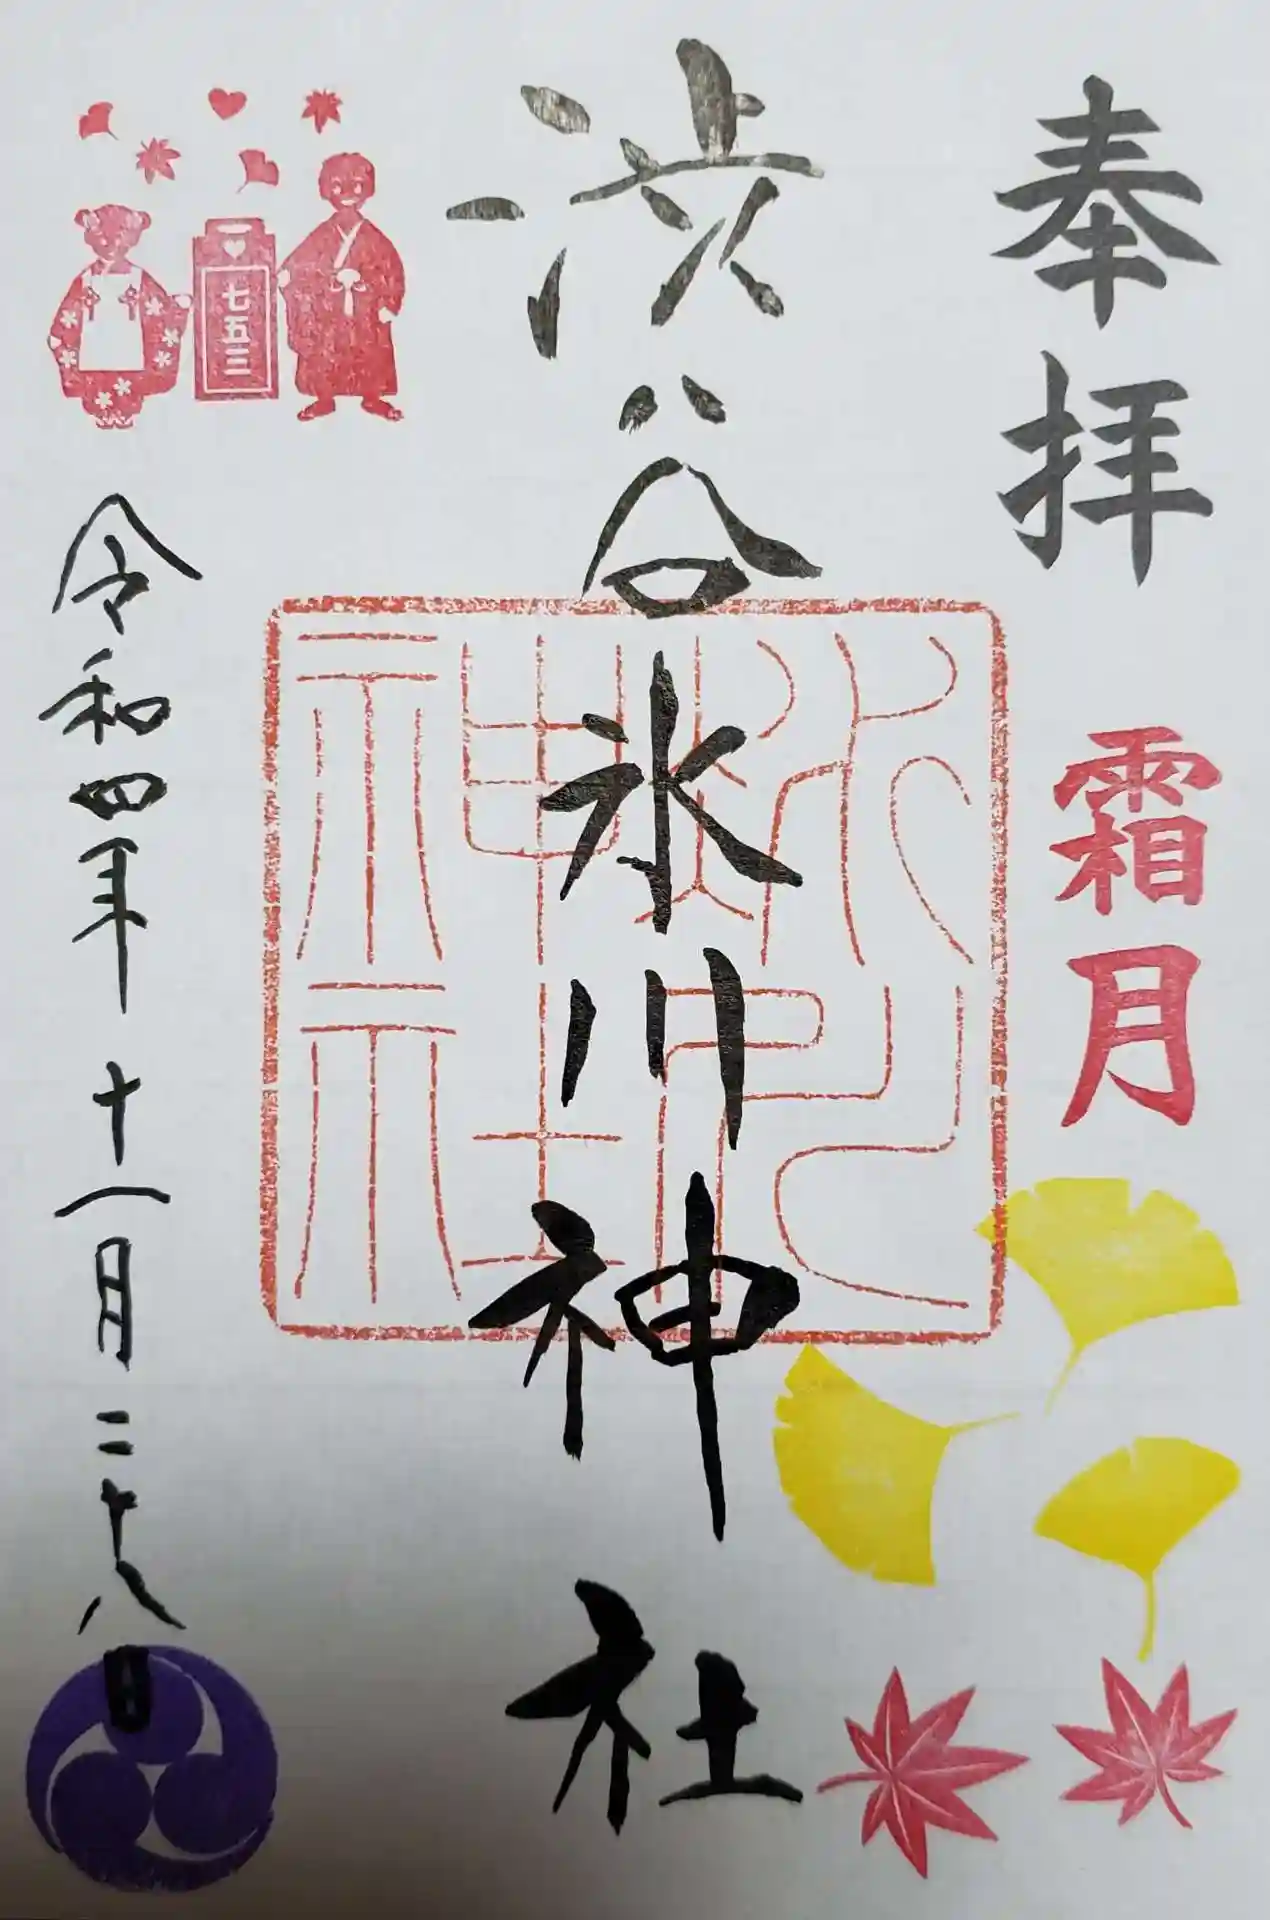 奉拝
霜月
渋谷氷川神社
氷川神社
七五三
令和四年十一月二十八日